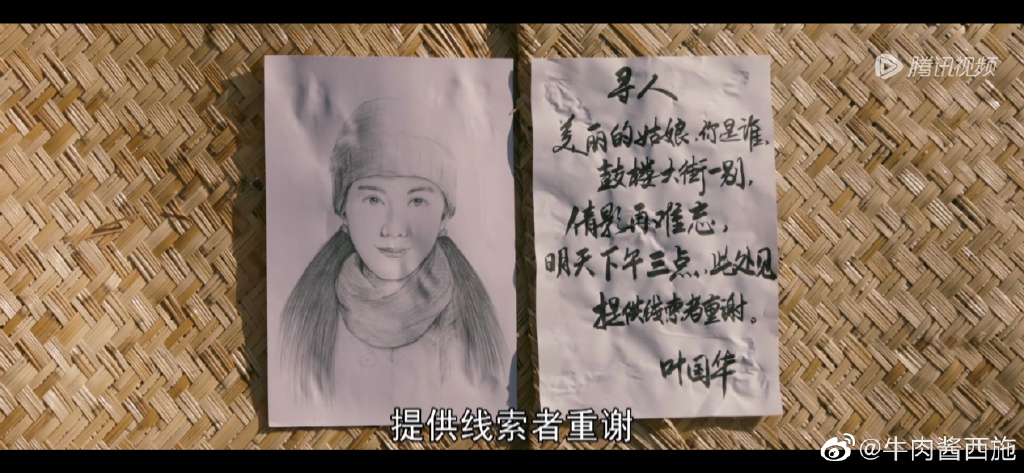 腾讯视频
寻人
美丽的姑娘、你是谁、
鼓楼大街一别,
倩影再难忘,
明天下午三点,此处见
提供线索者重谢。
叶国华
提供线索者重谢
@牛肉酱西施